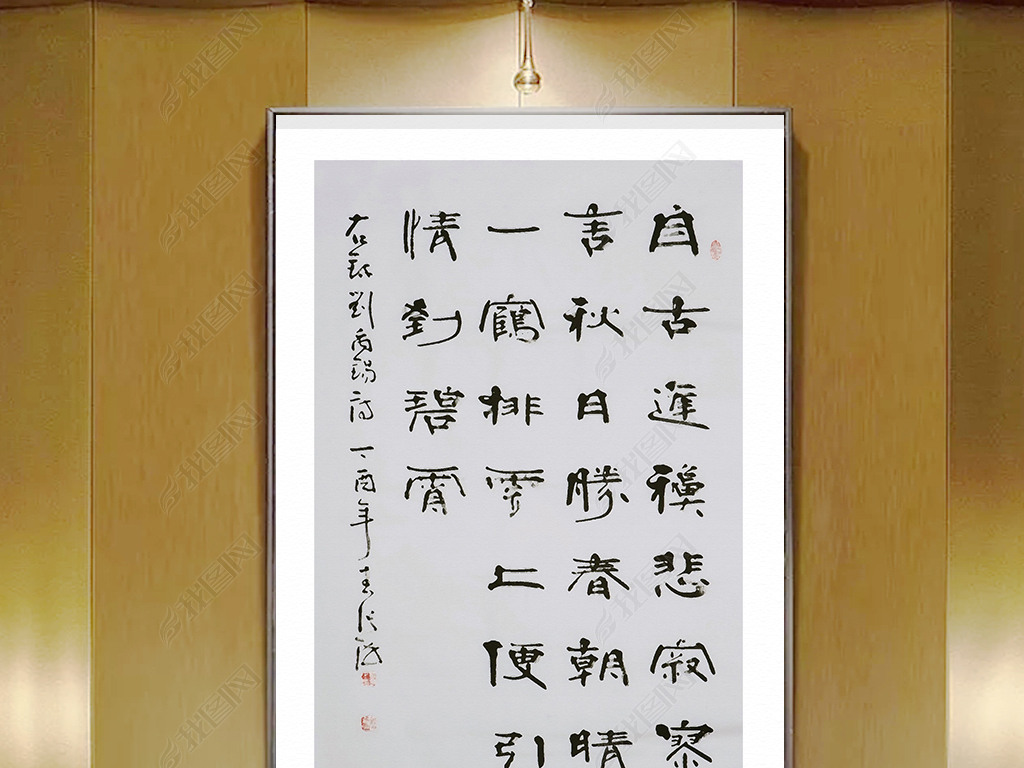 自古逢穐悲寂寥
言秋日勝春朝晴
一鶴排雲上便引
情到碧霄
右錄劉禹錫詩 丁酉年
我图网